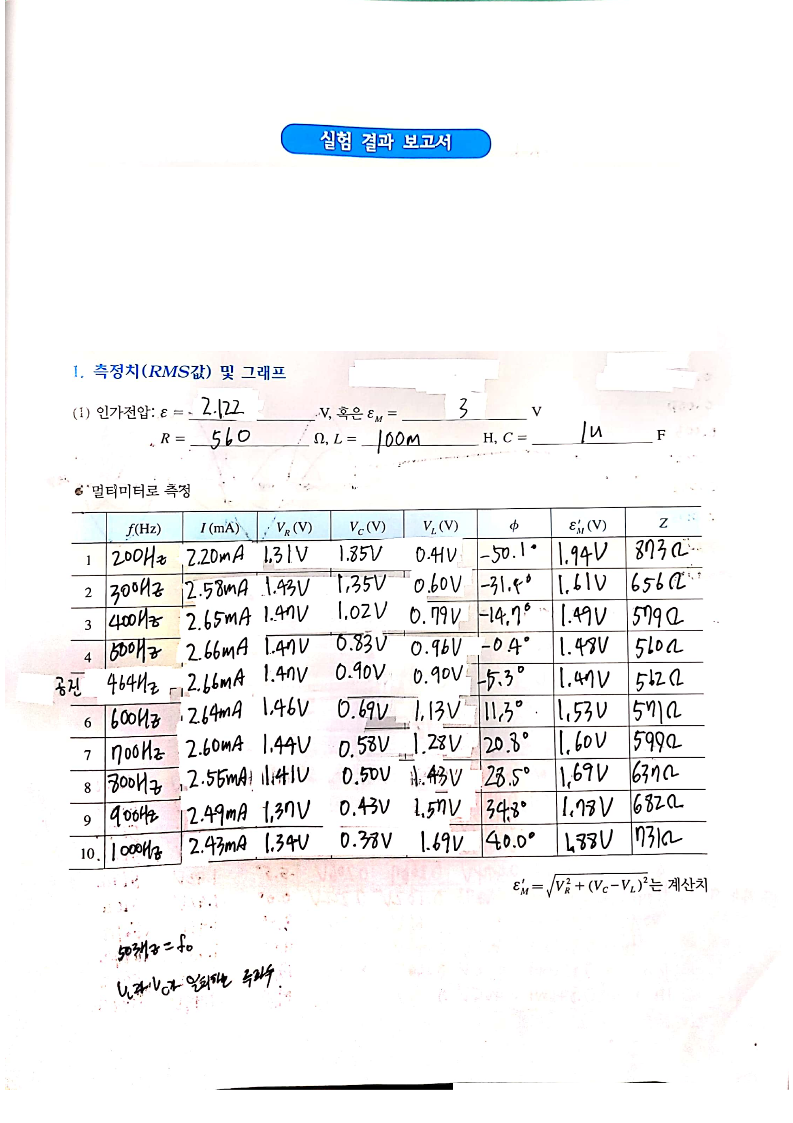 실험 결과 보고서
1. 측정치(RMS값) 및 그래프
(1) 인가전압: ε = 2.122 V, 혹은 ε_M = 3 V
R = 560 Ω, L = 100m H, C = 1u F
멀티미터로 측정
f(Hz) I(mA) V_R(V) V_C(V) V_L(V) ϕ ε′_M(V) Z
1 200Hz 2.20mA 1.31V 1.85V 0.41V -50.1° 1.94V 873Ω
2 300Hz 2.58mA 1.43V 1.35V 0.60V -31.4° 1.61V 656Ω
3 400Hz 2.65mA 1.47V 1.02V 0.79V -14.7° 1.49V 579Ω
4 500Hz 2.66mA 1.47V 0.83V 0.96V -0.4° 1.48V 560Ω
공진 464Hz 2.66mA 1.47V 0.90V 0.90V -5.3° 1.47V 562Ω
6 600Hz 2.64mA 1.46V 0.69V 1.13V 11.3° 1.53V 571Ω
7 700Hz 2.60mA 1.44V 0.58V 1.28V 20.8° 1.60V 599Ω
8 800Hz 2.55mA 1.41V 0.50V 1.43V 28.5° 1.69V 637Ω
9 900Hz 2.49mA 1.37V 0.43V 1.57V 34.8° 1.78V 682Ω
10 1000Hz 2.43mA 1.34V 0.38V 1.69V 40.0° 1.88V 731Ω
ε′_M = √V_R² + (V_C − V_L)²는 계산치
503Hz = f₀
V_L과 V_C가 일치하는 주파수.